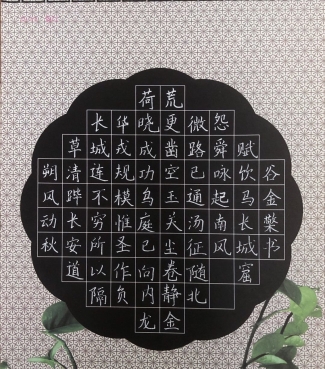 朔风动秋
草清跸长安道
长城连不穷所以隔
华戎规模惟圣作负
荷晓成功乌庭已向内龙
荒更凿空玉关尘卷静金
微路已通汤征随北
怨舜咏起南风
赋饮马长城窟
谷金檠书